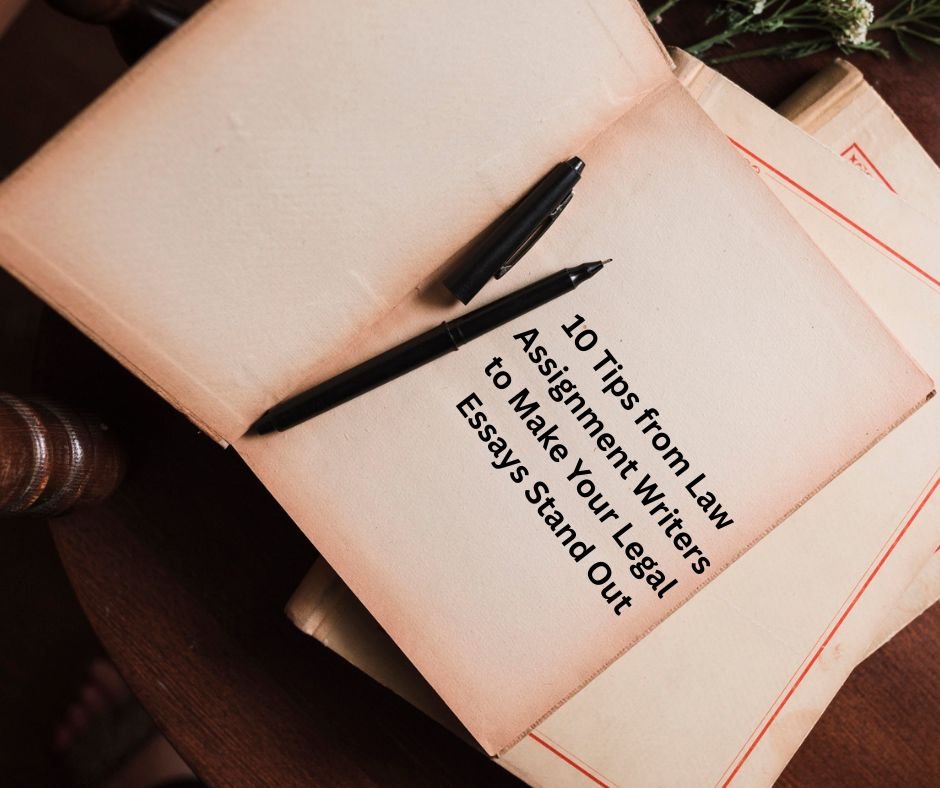 10 Tips from Law
Assignment Writers
to Make Your Legal
Essays Stand Out